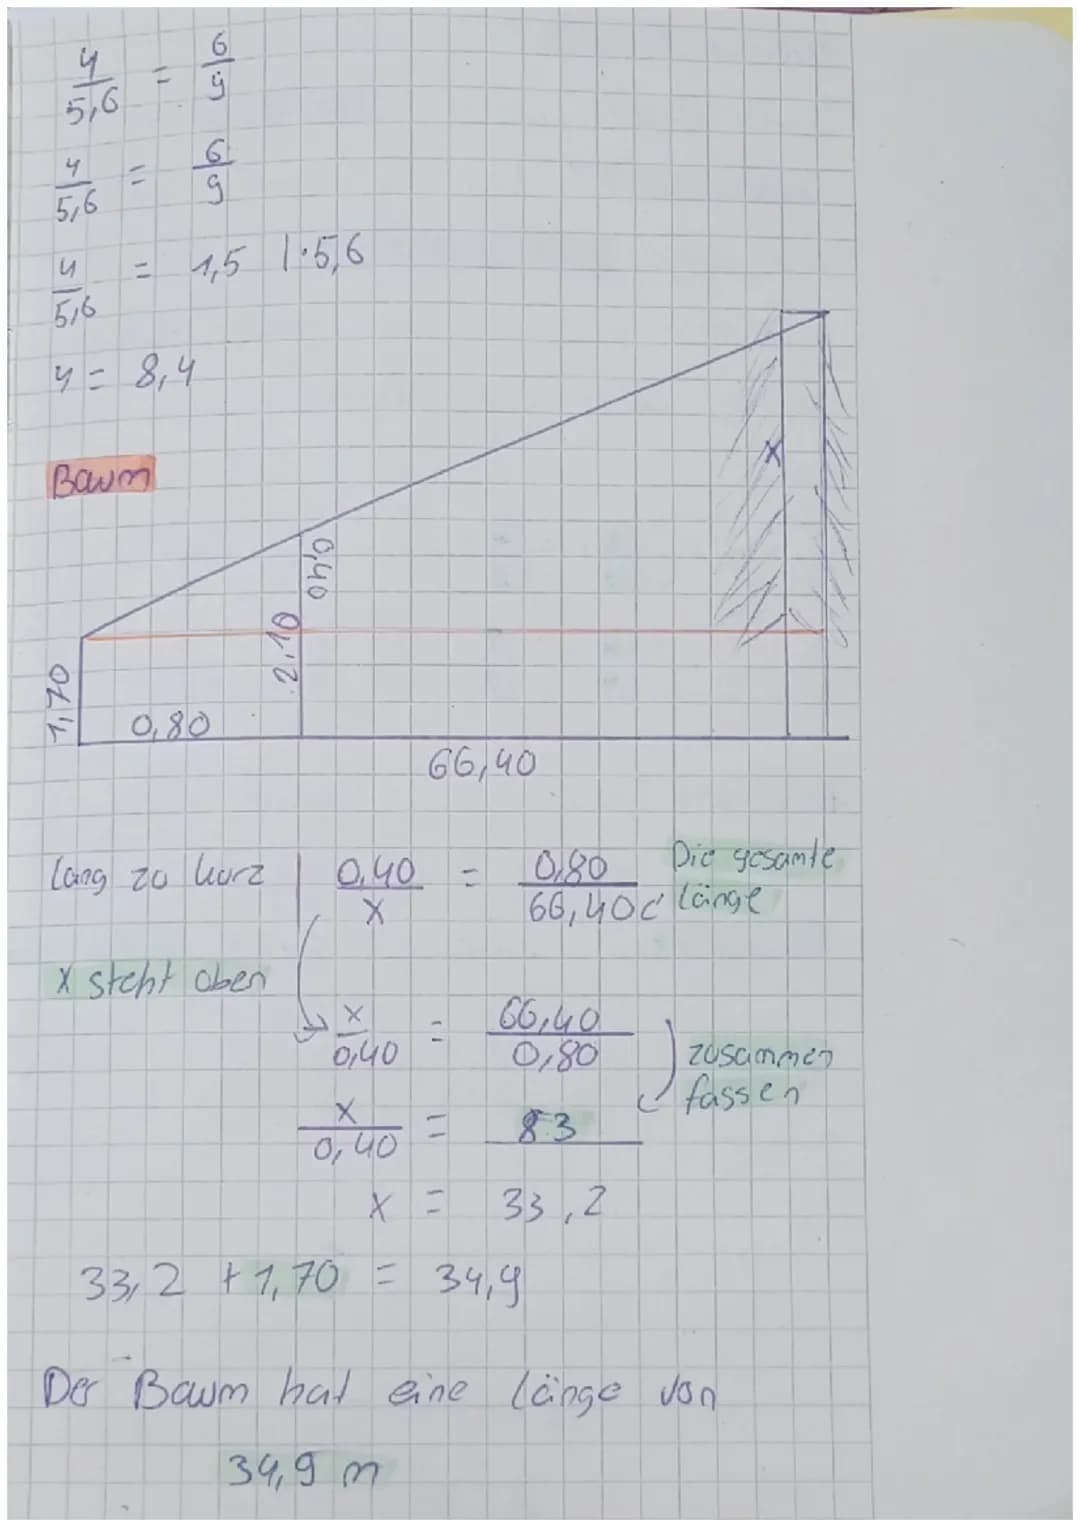 y/5,6 = 6/9
y/5,6 = 6/9
y/5,6 = 1,5 |·5,6
y = 8,4
Baum
x
0,40
2,10
1,70
0,80
66,40
lang zu kurz | 0,40/x = 0,80/66,40 Die gesamte Länge
x steht oben
x/0,40 = 66,40/0,80 zusammen fassen
x/0,40 = 83
x = 33,2
33,2 + 1,70 = 34,9
Der Baum hat eine länge von
34,9 m